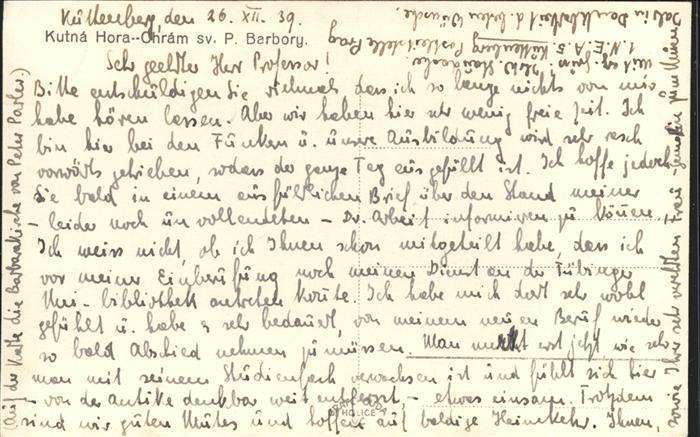 Kuttenberg, den 26. XII. 39.
Kutná Hora--Chrám sv. P. Barbory.
Sehr geehrter Herr Professor!
Bitte entschuldigen Sie vielmals dass ich so lange nichts von mir
habe hören lassen. Aber wir haben hier sehr wenig freie Zeit. Ich
bin hier bei den Funkern u. unsere Ausbildung wird sehr rasch
vorwärts getrieben, sodass der ganze Tag ausgefüllt ist. Ich hoffe jedoch
Sie bald in einem ausführlichen Brief über den Stand meiner
- leider noch unvollendeten - Dr. Arbeit informieren zu können.
Ich weiss nicht, ob ich Ihnen schon mitgeteilt habe, dass ich
vor meiner Einberufung noch meinen Dienst an der Tübinger
Uni-bibliothek antreten konnte. Ich habe mich dort sehr wohl
gefühlt u. habe es sehr bedauert, von meinem neuen Beruf wieder
so bald Abschied nehmen zu müssen. Man merkt erst jetzt, wie sehr
man mit seinem Studienfach verwachsen ist und fühlt sich hier
- von der Antike denkbar weit entfernt - etwas einsam. Trotzdem
sind wir guten Mutes und hoffen auf baldige Heimkehr. Ihnen,
sowie Ihrer sehr verehrten Frau Gemahlin zum Neuen
Jahr in Dankbarkeit d. besten Wünsche,
mit erg. Gruss
1. N.E.A. 5. Kuttenberg Postleitstelle Prag
(Auf der Karte die Barbarakirche von Peter Parler.)
HOLICE